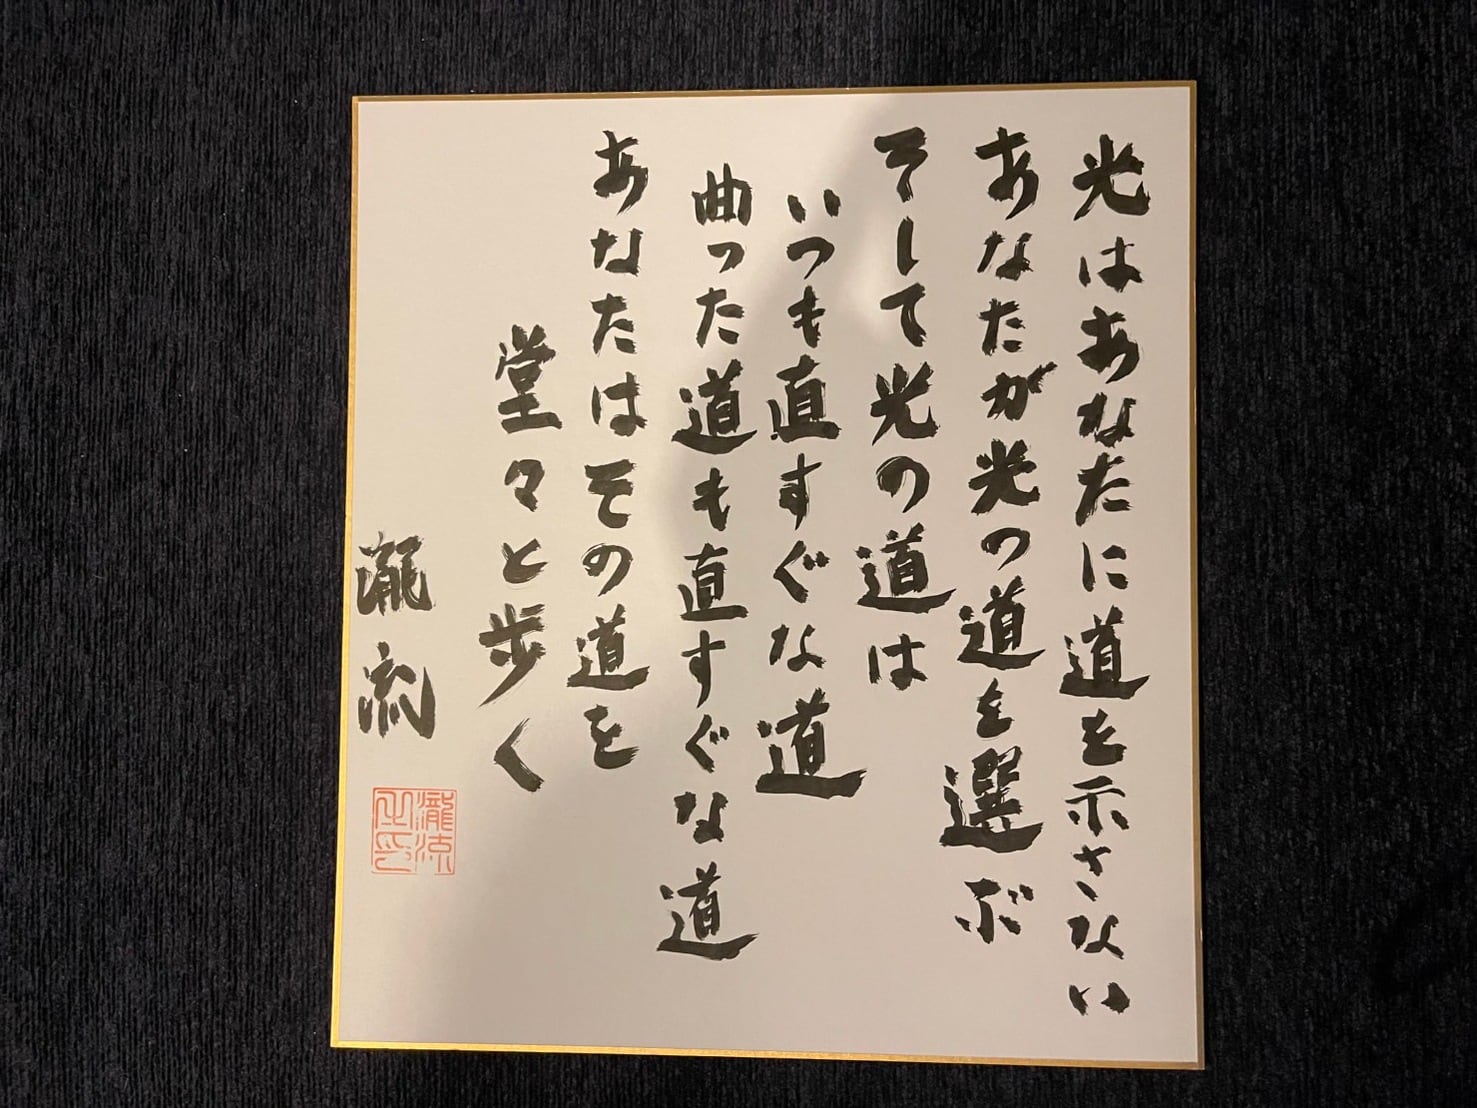 光はあなたに道を示さない
あなたが光の道を選ぶ
そして光の道は
いつも直すぐな道
曲った道も直すぐな道
あなたはその道を
堂々と歩く
瀧流